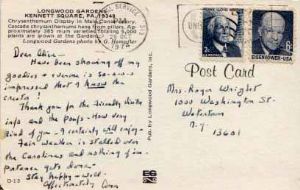 LONGWOOD GARDENS
KENNETT SQUARE, PA (19348)
Chrysanthemum Display in Main Conservatory.
Cascade chrysanthemums hang from pillars. Ap-
proximately 385 mum varieties totaling 5,000
plants are grown at the Gardens.
Longwood Gardens photo by G. Hampfler
Dear Alice —
Have been showing off my
goodies & everyone is so
impressed that I know the
creator!
Thank you for the friendly
info and the Poufs. How very
kind of you. I certainly will enjoy.
Fair weather is stalled over
the Carolinas and nothing of im-
portance gets done.
Stay happy & well
Affectionately
D-13
Pub. by Longwood Gardens, Inc.
2c
6c
EISENHOWER·USA
Post Card
Mrs. Roger Wright
1000 Washington St.
Watertown
N.Y
13601